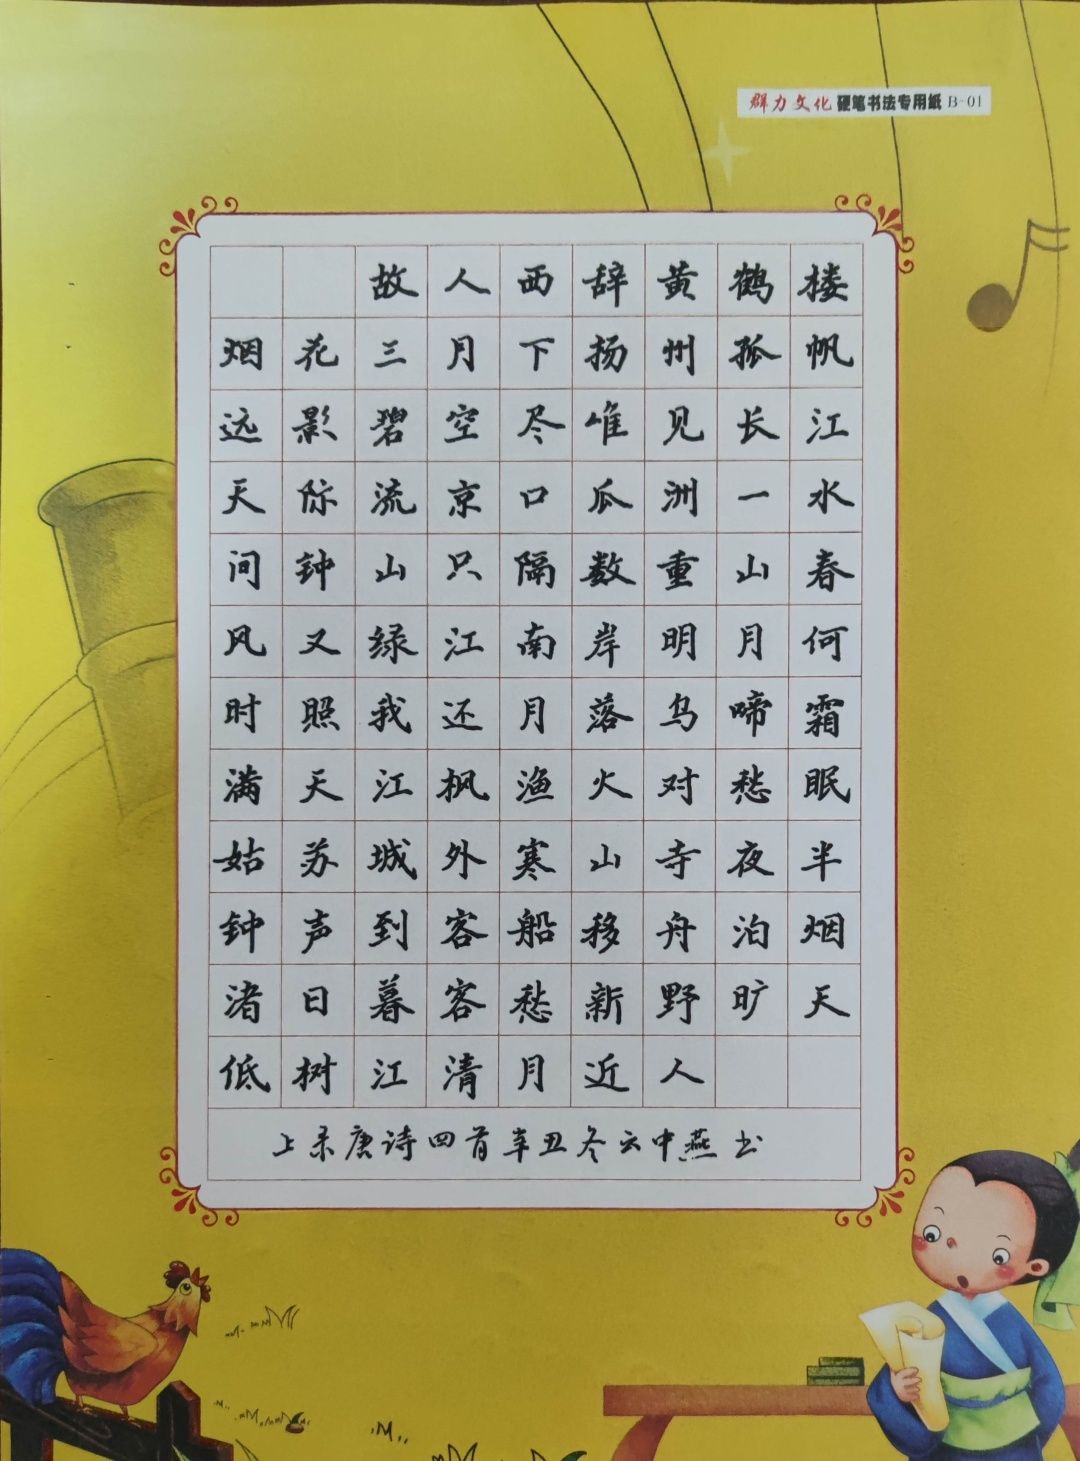 群力文化 硬笔书法专用纸 B-01
故人西辞黄鹤楼
烟花三月下扬州孤帆
远影碧空尽唯见长江
天际流京口瓜洲一水
间钟山只隔数重山春
风又绿江南岸明月何
时照我还月落乌啼霜
满天江枫渔火对愁眠
姑苏城外寒山寺夜半
钟声到客船移舟泊烟
渚日暮客愁新野旷天
低树江清月近人
上录唐诗四首辛丑冬云中燕书